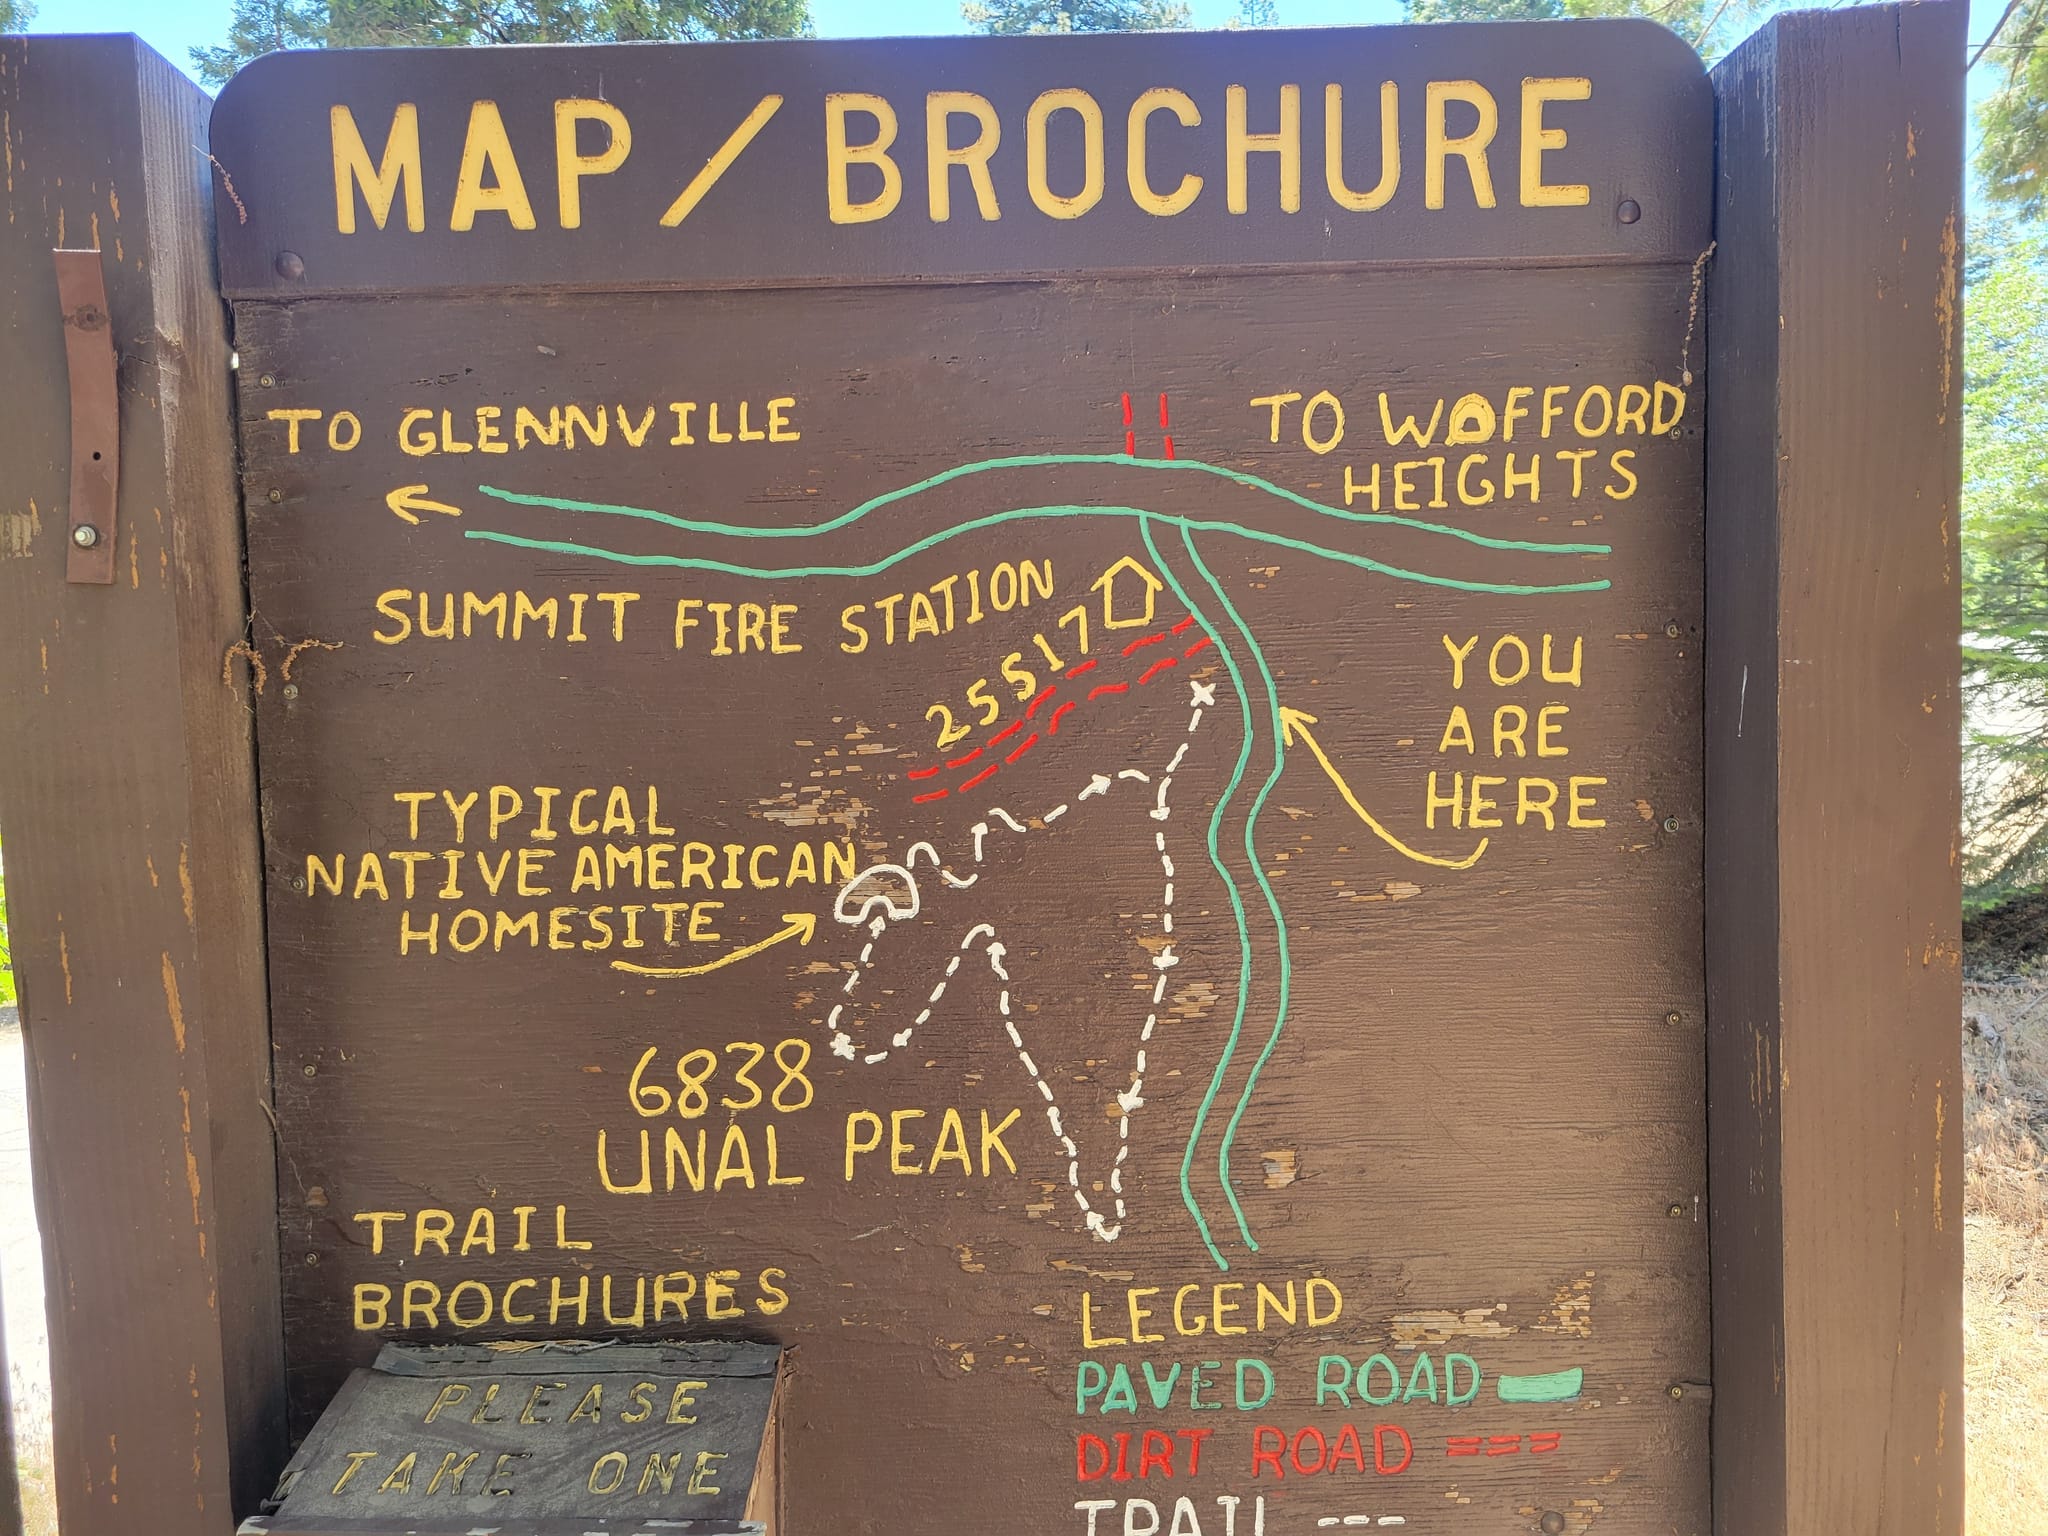 MAP / BROCHURE
TO GLENNVILLE
TO WOFFORD
HEIGHTS
SUMMIT FIRE STATION
25517
YOU
ARE
HERE
TYPICAL
NATIVE AMERICAN
HOMESITE
6838
UNAL PEAK
TRAIL
BROCHURES
PLEASE
TAKE ONE
LEGEND
PAVED ROAD
DIRT ROAD
TRAIL